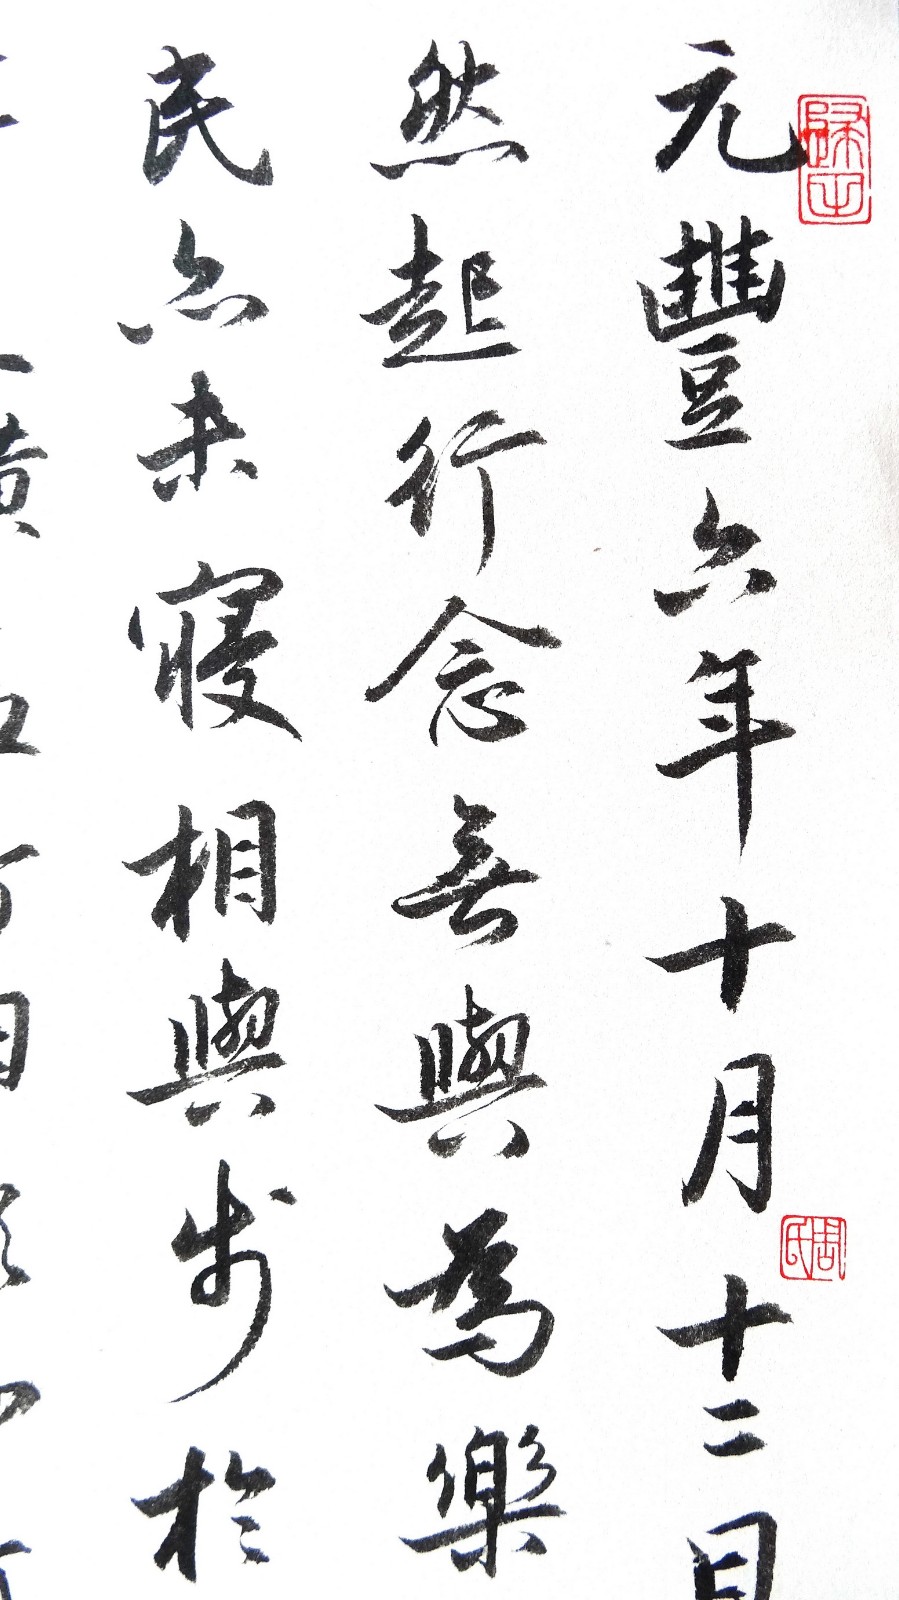 元豐六年十月十二日
然起行念無與為樂
民亦未寝相與步於
周氏